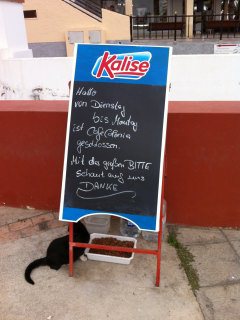 Kalise
Hallo
von Dienstag
bis Montag
ist Cafe Colonia
geschlossen.
Mit der großen BITTE
schaut auf uns
DANKE